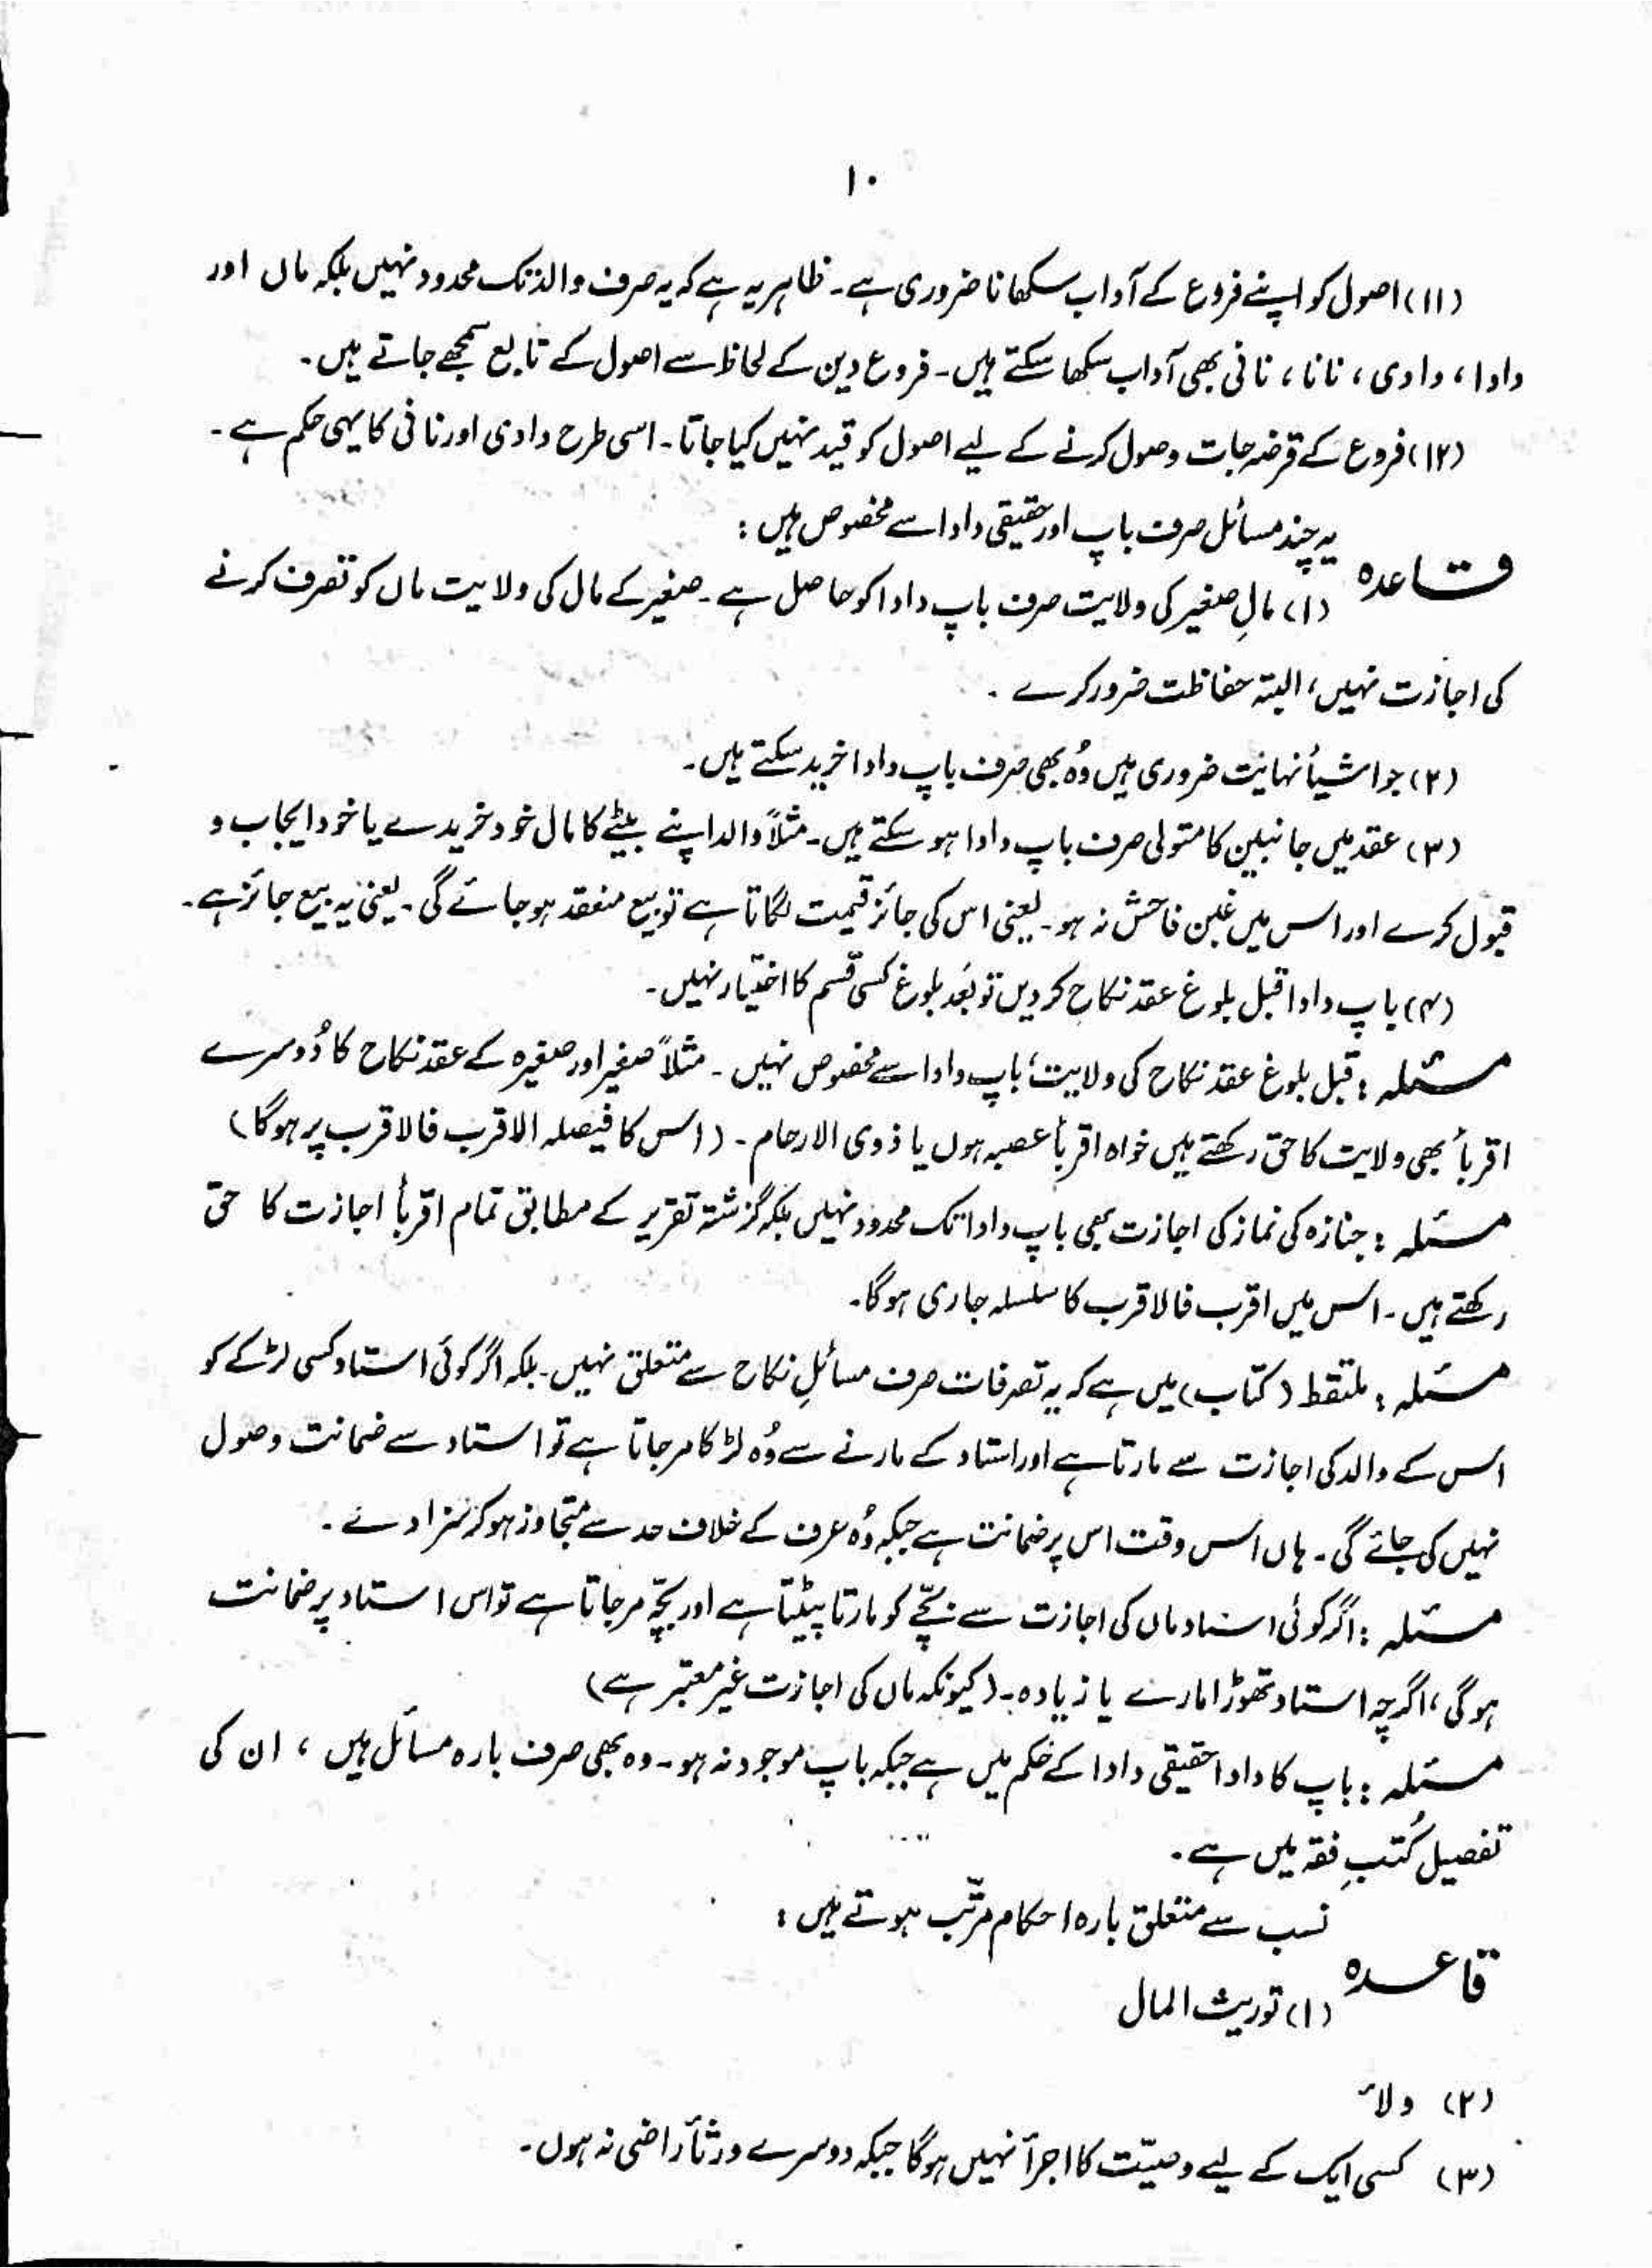 ۱۰
(۱۱) اصول کو اپنے فروع کے آداب سکھانا ضروری ہے۔ ظاہر یہ ہے کہ یہ صرف والد تک محدود نہیں بلکہ ماں اور
دادا، دادی، نانا، نانی بھی آداب سکھا سکتے ہیں۔ فروع دین کے لحاظ سے اصول کے تابع سمجھے جاتے ہیں۔
(۱۲) فروع کے قرضہ جات وصول کرنے کے لیے اصول کو قید نہیں کیا جاتا۔ اسی طرح دادی اور نانی کا یہی حکم ہے۔
یہ چند مسائل صرف باپ اور حقیقی دادا سے مخصوص ہیں:
قاعدہ
(۱) مالِ صغیر کی ولایت صرف باپ دادا کو حاصل ہے۔ صغیر کے مال کی ولایت ماں کو تصرف کرنے
کی اجازت نہیں، البتہ حفاظت ضرور کرے۔
(۲) جو اشیأ نہایت ضروری ہیں وُہ بھی صرف باپ دادا خرید سکتے ہیں۔
(۳) عقد میں جانبین کا متولی صرف باپ دادا ہو سکتے ہیں۔ مثلاً والد اپنے بیٹے کا مال خود خریدے یا خود ایجاب و
قبول کرے اور اس میں غبن فاحش نہ ہو۔ یعنی اس کی جائز قیمت لگاتا ہے تو بیع منعقد ہو جائے گی۔ یعنی یہ بیع جائز ہے۔
(۴) باپ دادا قبل بلوغ عقد نکاح کر دیں تو بَعد بلوغ کسی قسم کا اختیار نہیں۔
مسئلہ: قبل بلوغ عقد نکاح کی ولایت، باپ دادا سے مخصوص نہیں۔ مثلاً صغیر اور صغیرہ کے عقد نکاح کا دُوسرے
اقربأ بھی ولایت کا حق رکھتے ہیں خواہ اقربأ عصبہ ہوں یا ذوی الارحام۔ (اس کا فیصلہ الاقرب فالاقرب پر ہوگا)
مسئلہ: جنازہ کی نماز کی اجازت بھی باپ دادا تک محدود نہیں بلکہ گزشتہ تقریر کے مطابق تمام اقربأ اجازت کا حق
رکھتے ہیں۔ اس میں اقرب فالاقرب کا سلسلہ جاری ہوگا۔
مسئلہ: ملتقط (کتاب) میں ہے کہ یہ تصرفات صرف مسائلِ نکاح سے متعلق نہیں۔ بلکہ اگر کوئی استاد کسی لڑکے کو
اس کے والد کی اجازت سے مارتا ہے اور استاد کے مارنے سے وُہ لڑکا مرجاتا ہے تو استاد سے ضمانت وصول
نہیں کی جائے گی۔ ہاں اس وقت اس پر ضمانت ہے جبکہ وُہ عرف کے خلاف حد سے متجاوز ہو کر سزا دے۔
مسئلہ: اگر کوئی استاد ماں کی اجازت سے بچّے کو مارتا پیٹتا ہے اور بچّہ مرجاتا ہے تو اس استاد پر ضمانت
ہوگی، اگرچہ استاد تھوڑا مارے یا زیادہ۔ (کیونکہ ماں کی اجازت غیر معتبر ہے)
مسئلہ: باپ کا دادا حقیقی دادا کے حکم میں ہے جبکہ باپ موجود نہ ہو۔ وہ بھی صرف بارہ مسائل ہیں، ان کی
تفصیل کُتبِ فقہ میں ہے۔
نسب سے متعلق بارہ احکام مرتّب ہوتے ہیں:
قاعدہ
(۱) توریث المال
(۲) ولاء
(۳) کسی ایک کے لیے وصیّت کا اجرأ نہیں ہوگا جبکہ دوسرے ورثأ راضی نہ ہوں۔